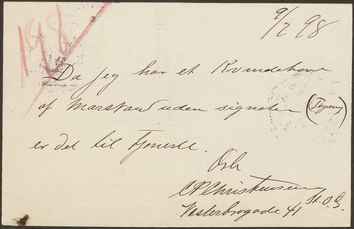 9/2 98
198
Da jeg har et Kvindehoved
af Marstrand uden signatur
(Tegning)
er det til Tjeneste.
Erb
CPChristensen St. O. G.
Vesterbrogade 41